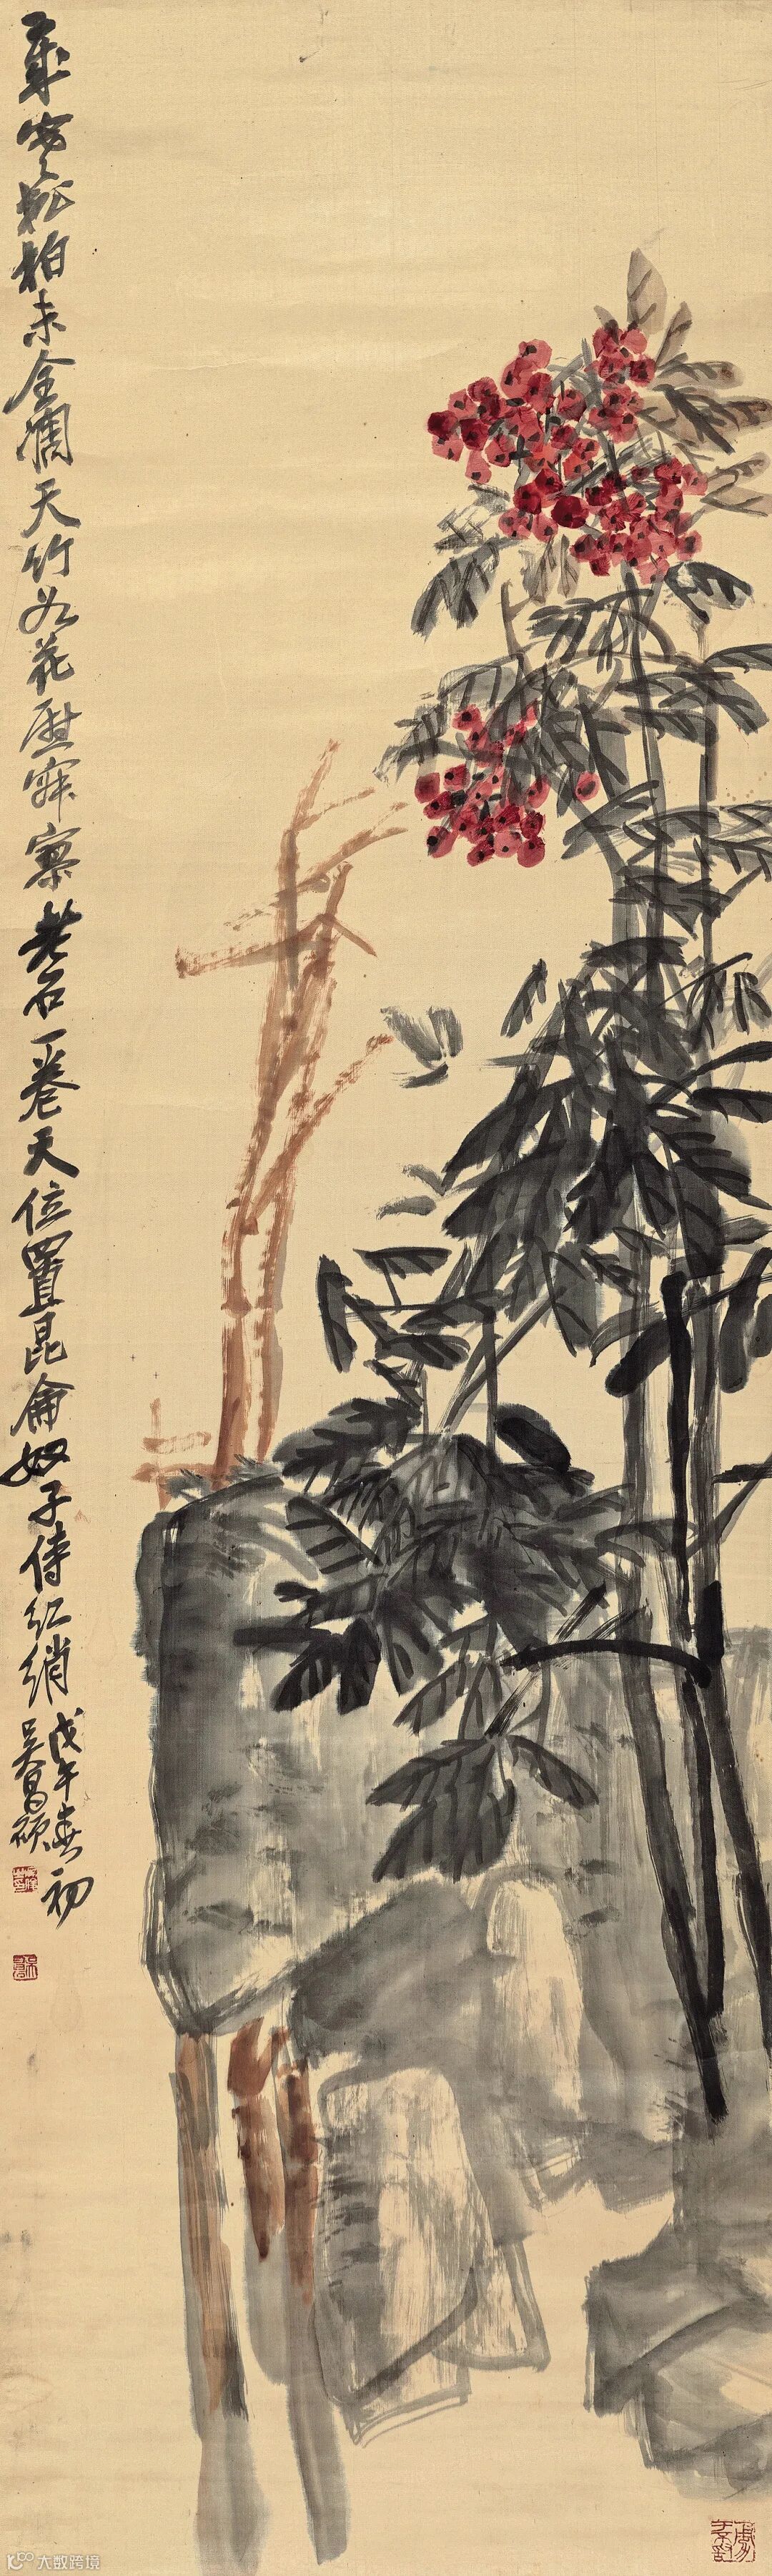 歲寒松柏未全凋天竹如花慰寂寥老石一卷天位置昆侖奴子侍紅綃
戊午春初
吳昌碩
大数跨境